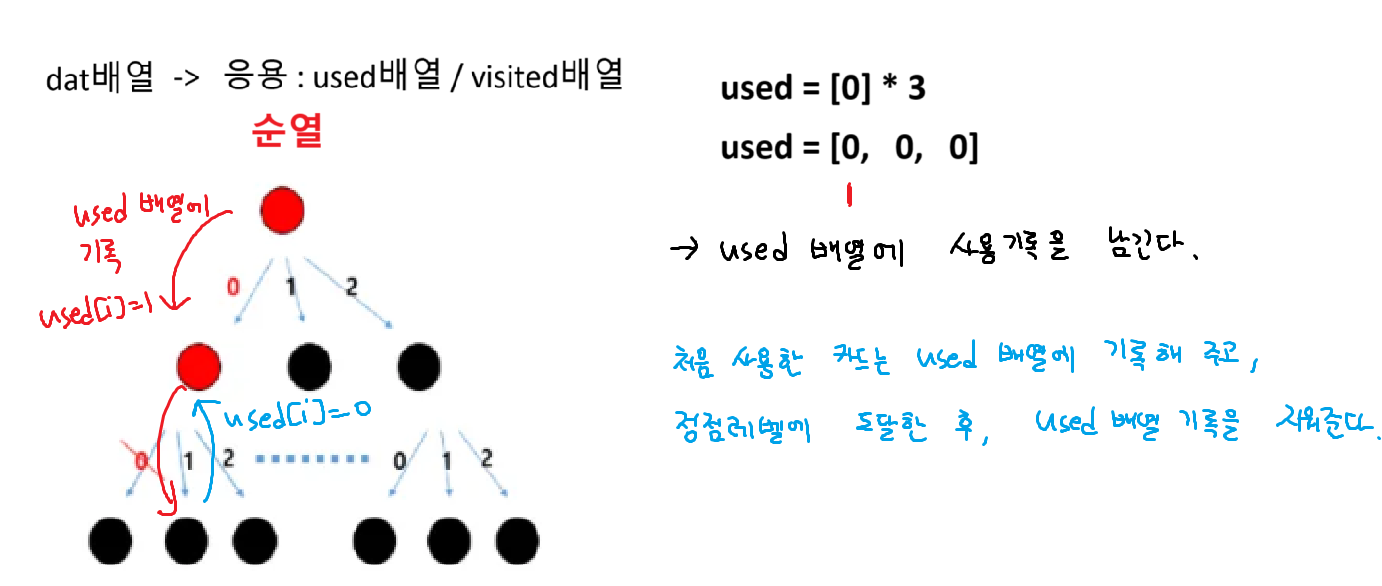 dat배열 -> 응용 : used배열 / visited배열
순열
used 배열에
기록
used[i]=1
0 1 2
used[i]=0
0 1 2 0 1 2
used = [0] * 3
used = [0, 0, 0]
1
→ used 배열에 사용기록을 남긴다.
처음 사용한 카드는 used 배열에 기록해 주고,
정점레벨에 도달한 후, used 배열 기록을 지워준다.